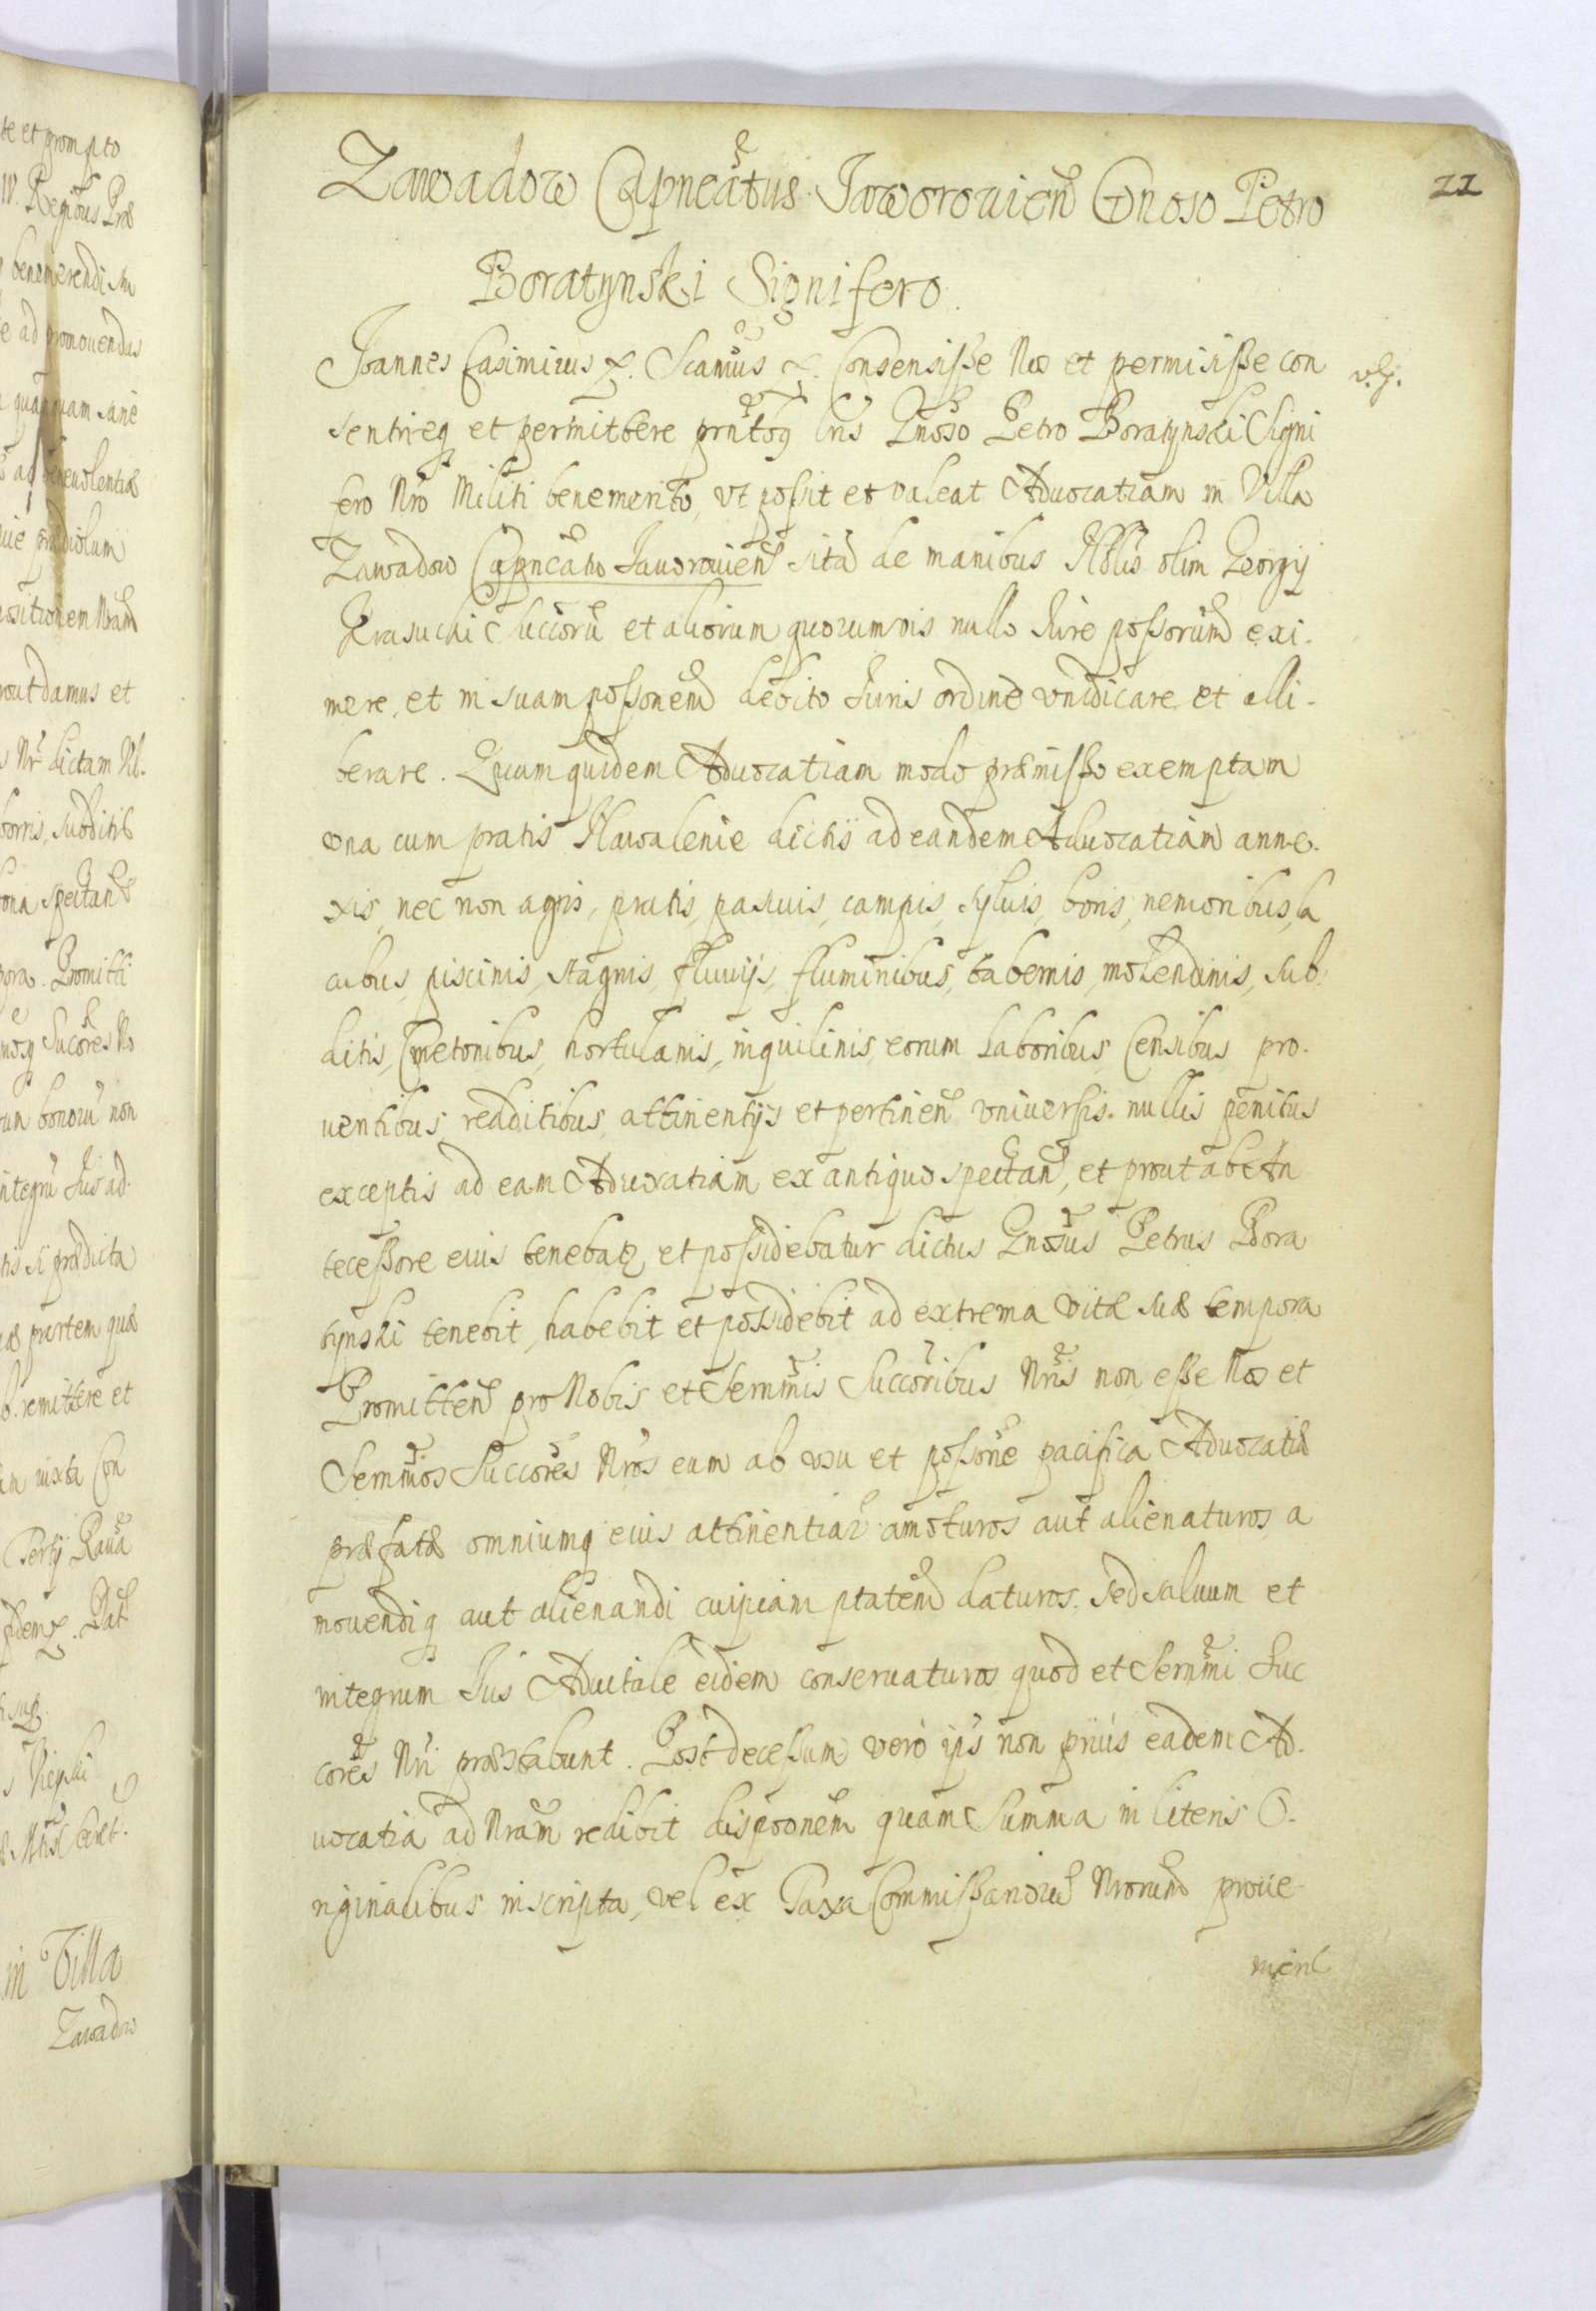 te et prompto
W. Regibus Præ
benemerendi stu
e ad promouendas
quamquam sane
ad beneuolentiæ
prædiolum
ositionem Nram̃
rout damus et
Nr̃ dictam Vil.
borris, subditis
ona spectañ
pora. Promitti
mosq Succores No
rum bonorũ non
integrũ Ius ad
tis si prædicta
partem quæ
remittere et
iuxta Con
Rauã
fidem &. Dat
in Villa
Zawadow
22
Zawadow Capneatus Jaworouien̄ Gnoso Petro
Boratynski Signifero.
Joannes Casimirus &. Scamus &. Consensisse Nos et permisisse con
sentireq et permittere pñtbq Lris Gnoso Petro Boratynski Signi
fero Nro Militi benemerito, vt possit et valeat Aduocatiam in Villa
Zawadow Capneatu Jauorouien̄ sitã de manibus Nblis olim Georgij
Krasucki Succorũ et aliorum quorumuis nullo Iure possorũm exi.
mere, et in suam possonem̃ debito Iuris ordine vindicare et alli.
berare. Quam quidem Aduocatiam modo præmisso exemptam
vna cum pratis Nawalenie dictis ad eandem Aduocatiam anne.
xis, nec non agris, pratis, pascuis, campis, syluis, boris, nemoribus, la
cubus, piscinis, stagnis, fluuijs, fluminibus, tabernis, molendinis, sub
ditis, Cmetonibus, hortulanis, inquilinis, eorum laboribus, Censibus, pro.
uentibus, redditibus, attinentijs et pertinen̄ vniuersis. nullis penitus
exceptis ad eam Aduocatiam ex antiquo spectan̄, et prout ab An
tecessore eius tenebatr, et possidebatur dictus Gnosus Petrus Bora
tynski tenebit, habebit et possidebit ad extrema vitæ suæ tempora
Promitten̄ pro Nobis et Sermis Succoribus Nris non esse Nos et
Sermos Succores Nros eum ab vsu et possone pacifica Aduocatiæ
præfatæ omniumq eius attinentiar̃ amoturos aut alienaturos a
mouendiq aut alienandi cuipiam ptatem̃ daturos. Sed saluum et
integrum Ius Aduitale eidem conseruaturos quod et Sermi Suc
cores Nri præstabunt. Post decessum vero ips̃ non prius eadem Ad.
uocatia ad Nram redibit disponem quam Summa in literis O.
riginalibus inscripta, vel ex Taxa Commissariorũ Nrorum̃ proue
nien̄